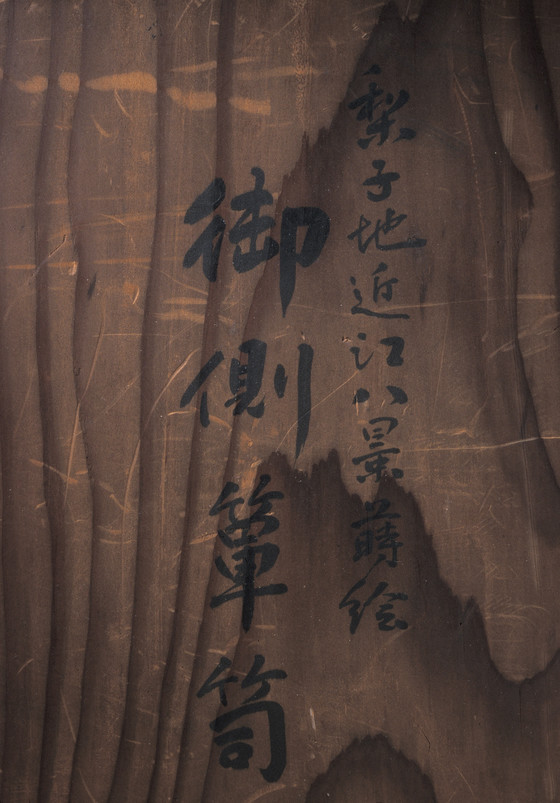 梨子地近江八景蒔絵
御側箪笥